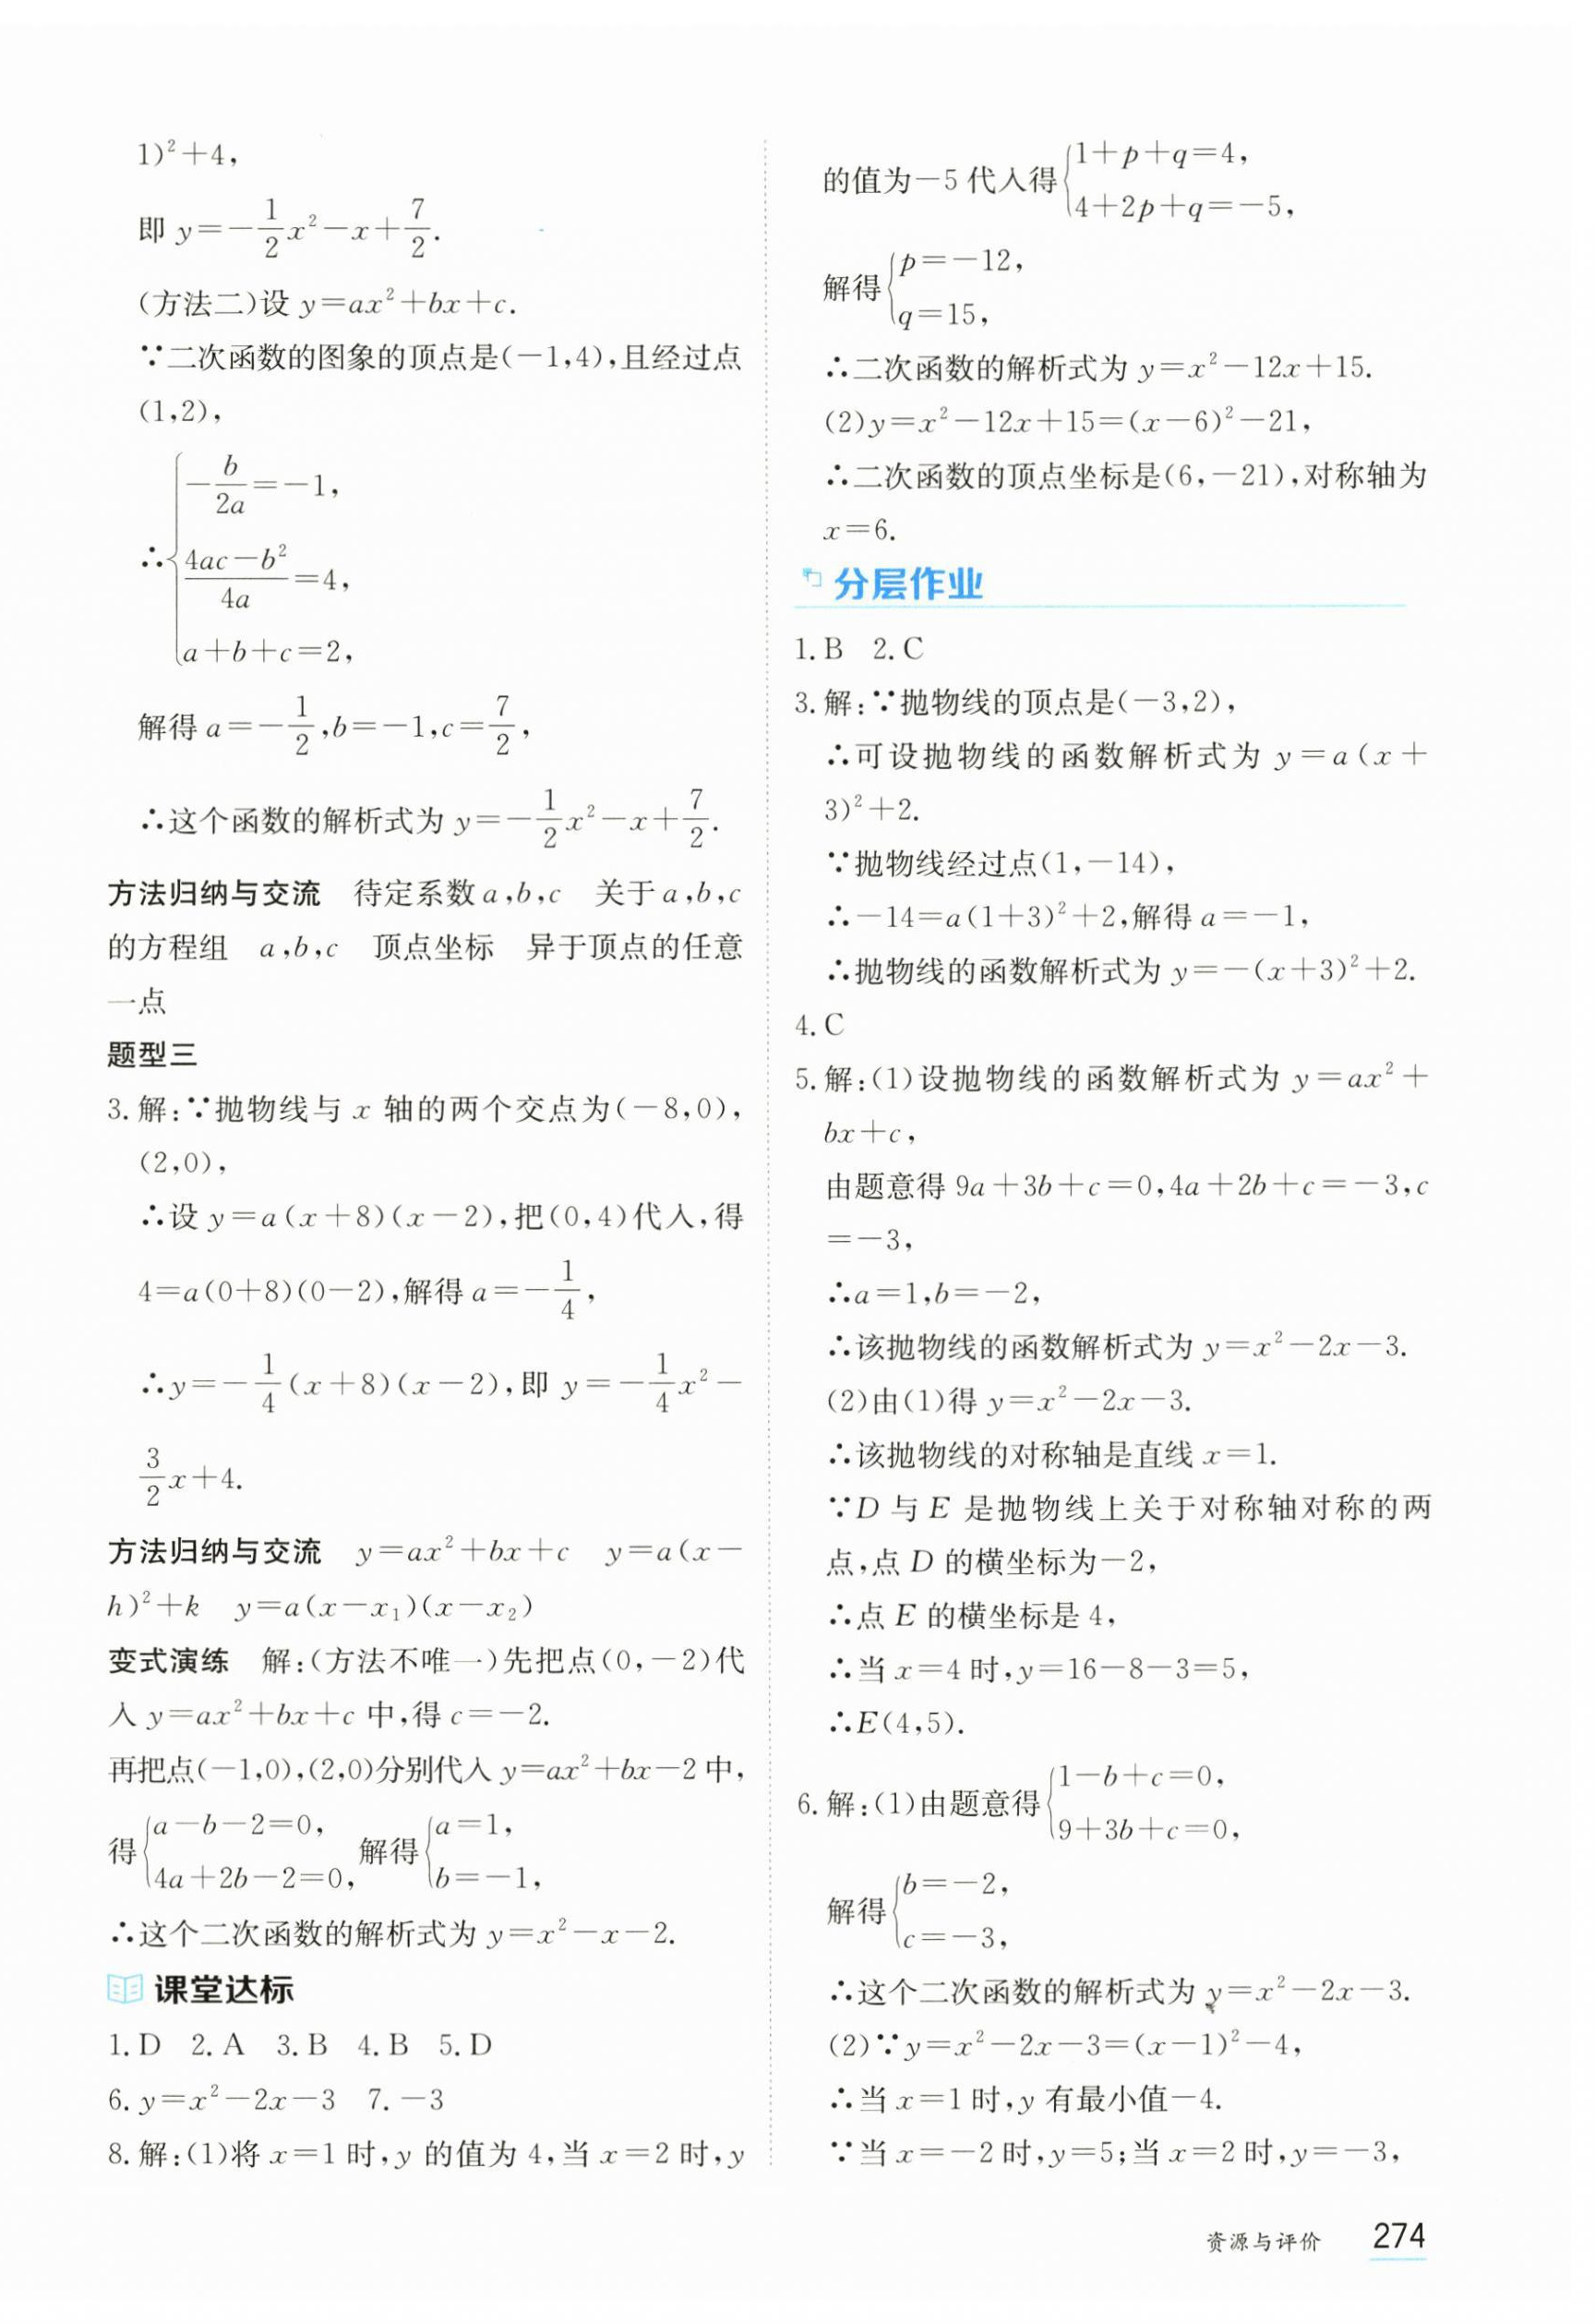 1)²+4，
即 y=-1/2x²-x+7/2.
(方法二)设 y=ax²+bx+c.
∵二次函数的图象的顶点是(-1,4),且经过点
(1,2),
∴{-b/2a=-1,
(4ac-b²)/4a=4,
a+b+c=2,
解得 a=-1/2,b=-1,c=7/2,
∴这个函数的解析式为 y=-1/2x²-x+7/2.
方法归纳与交流 待定系数 a,b,c 关于 a,b,c
的方程组 a,b,c 顶点坐标 异于顶点的任意
一点
题型三
3.解:∵抛物线与 x 轴的两个交点为(-8,0),
(2,0),
∴设 y=a(x+8)(x-2),把(0,4)代入,得
4=a(0+8)(0-2),解得 a=-1/4,
∴y=-1/4(x+8)(x-2),即 y=-1/4x²-
3/2x+4.
方法归纳与交流 y=ax²+bx+c y=a(x-
h)²+k y=a(x-x₁)(x-x₂)
变式演练 解:(方法不唯一)先把点(0,-2)代
入 y=ax²+bx+c 中,得 c=-2.
再把点(-1,0),(2,0)分别代入 y=ax²+bx-2 中,
得{a-b-2=0, 4a+2b-2=0, 解得{a=1, b=-1,
∴这个二次函数的解析式为 y=x²-x-2.
课堂达标
1.D 2.A 3.B 4.B 5.D
6.y=x²-2x-3 7.-3
8.解:(1)将 x=1 时,y 的值为 4,当 x=2 时,y
的值为-5 代入得{1+p+q=4, 4+2p+q=-5,
解得{p=-12, q=15,
∴二次函数的解析式为 y=x²-12x+15.
(2)y=x²-12x+15=(x-6)²-21,
∴二次函数的顶点坐标是(6,-21),对称轴为
x=6.
分层作业
1.B 2.C
3.解:∵抛物线的顶点是(-3,2),
∴可设抛物线的函数解析式为 y=a(x+
3)²+2.
∵抛物线经过点(1,-14),
∴-14=a(1+3)²+2,解得 a=-1,
∴抛物线的函数解析式为 y=-(x+3)²+2.
4.C
5.解:(1)设抛物线的函数解析式为 y=ax²+
bx+c,
由题意得 9a+3b+c=0,4a+2b+c=-3,c
=-3,
∴a=1,b=-2,
∴该抛物线的函数解析式为 y=x²-2x-3.
(2)由(1)得 y=x²-2x-3.
∴该抛物线的对称轴是直线 x=1.
∵D 与 E 是抛物线上关于对称轴对称的两
点,点 D 的横坐标为-2,
∴点 E 的横坐标是 4,
∴当 x=4 时,y=16-8-3=5,
∴E(4,5).
6.解:(1)由题意得{1-b+c=0, 9+3b+c=0,
解得{b=-2, c=-3,
∴这个二次函数的解析式为 y=x²-2x-3.
(2)∵y=x²-2x-3=(x-1)²-4,
∴当 x=1 时,y 有最小值-4.
∵当 x=-2 时,y=5;当 x=2 时,y=-3,
资源与评价 274